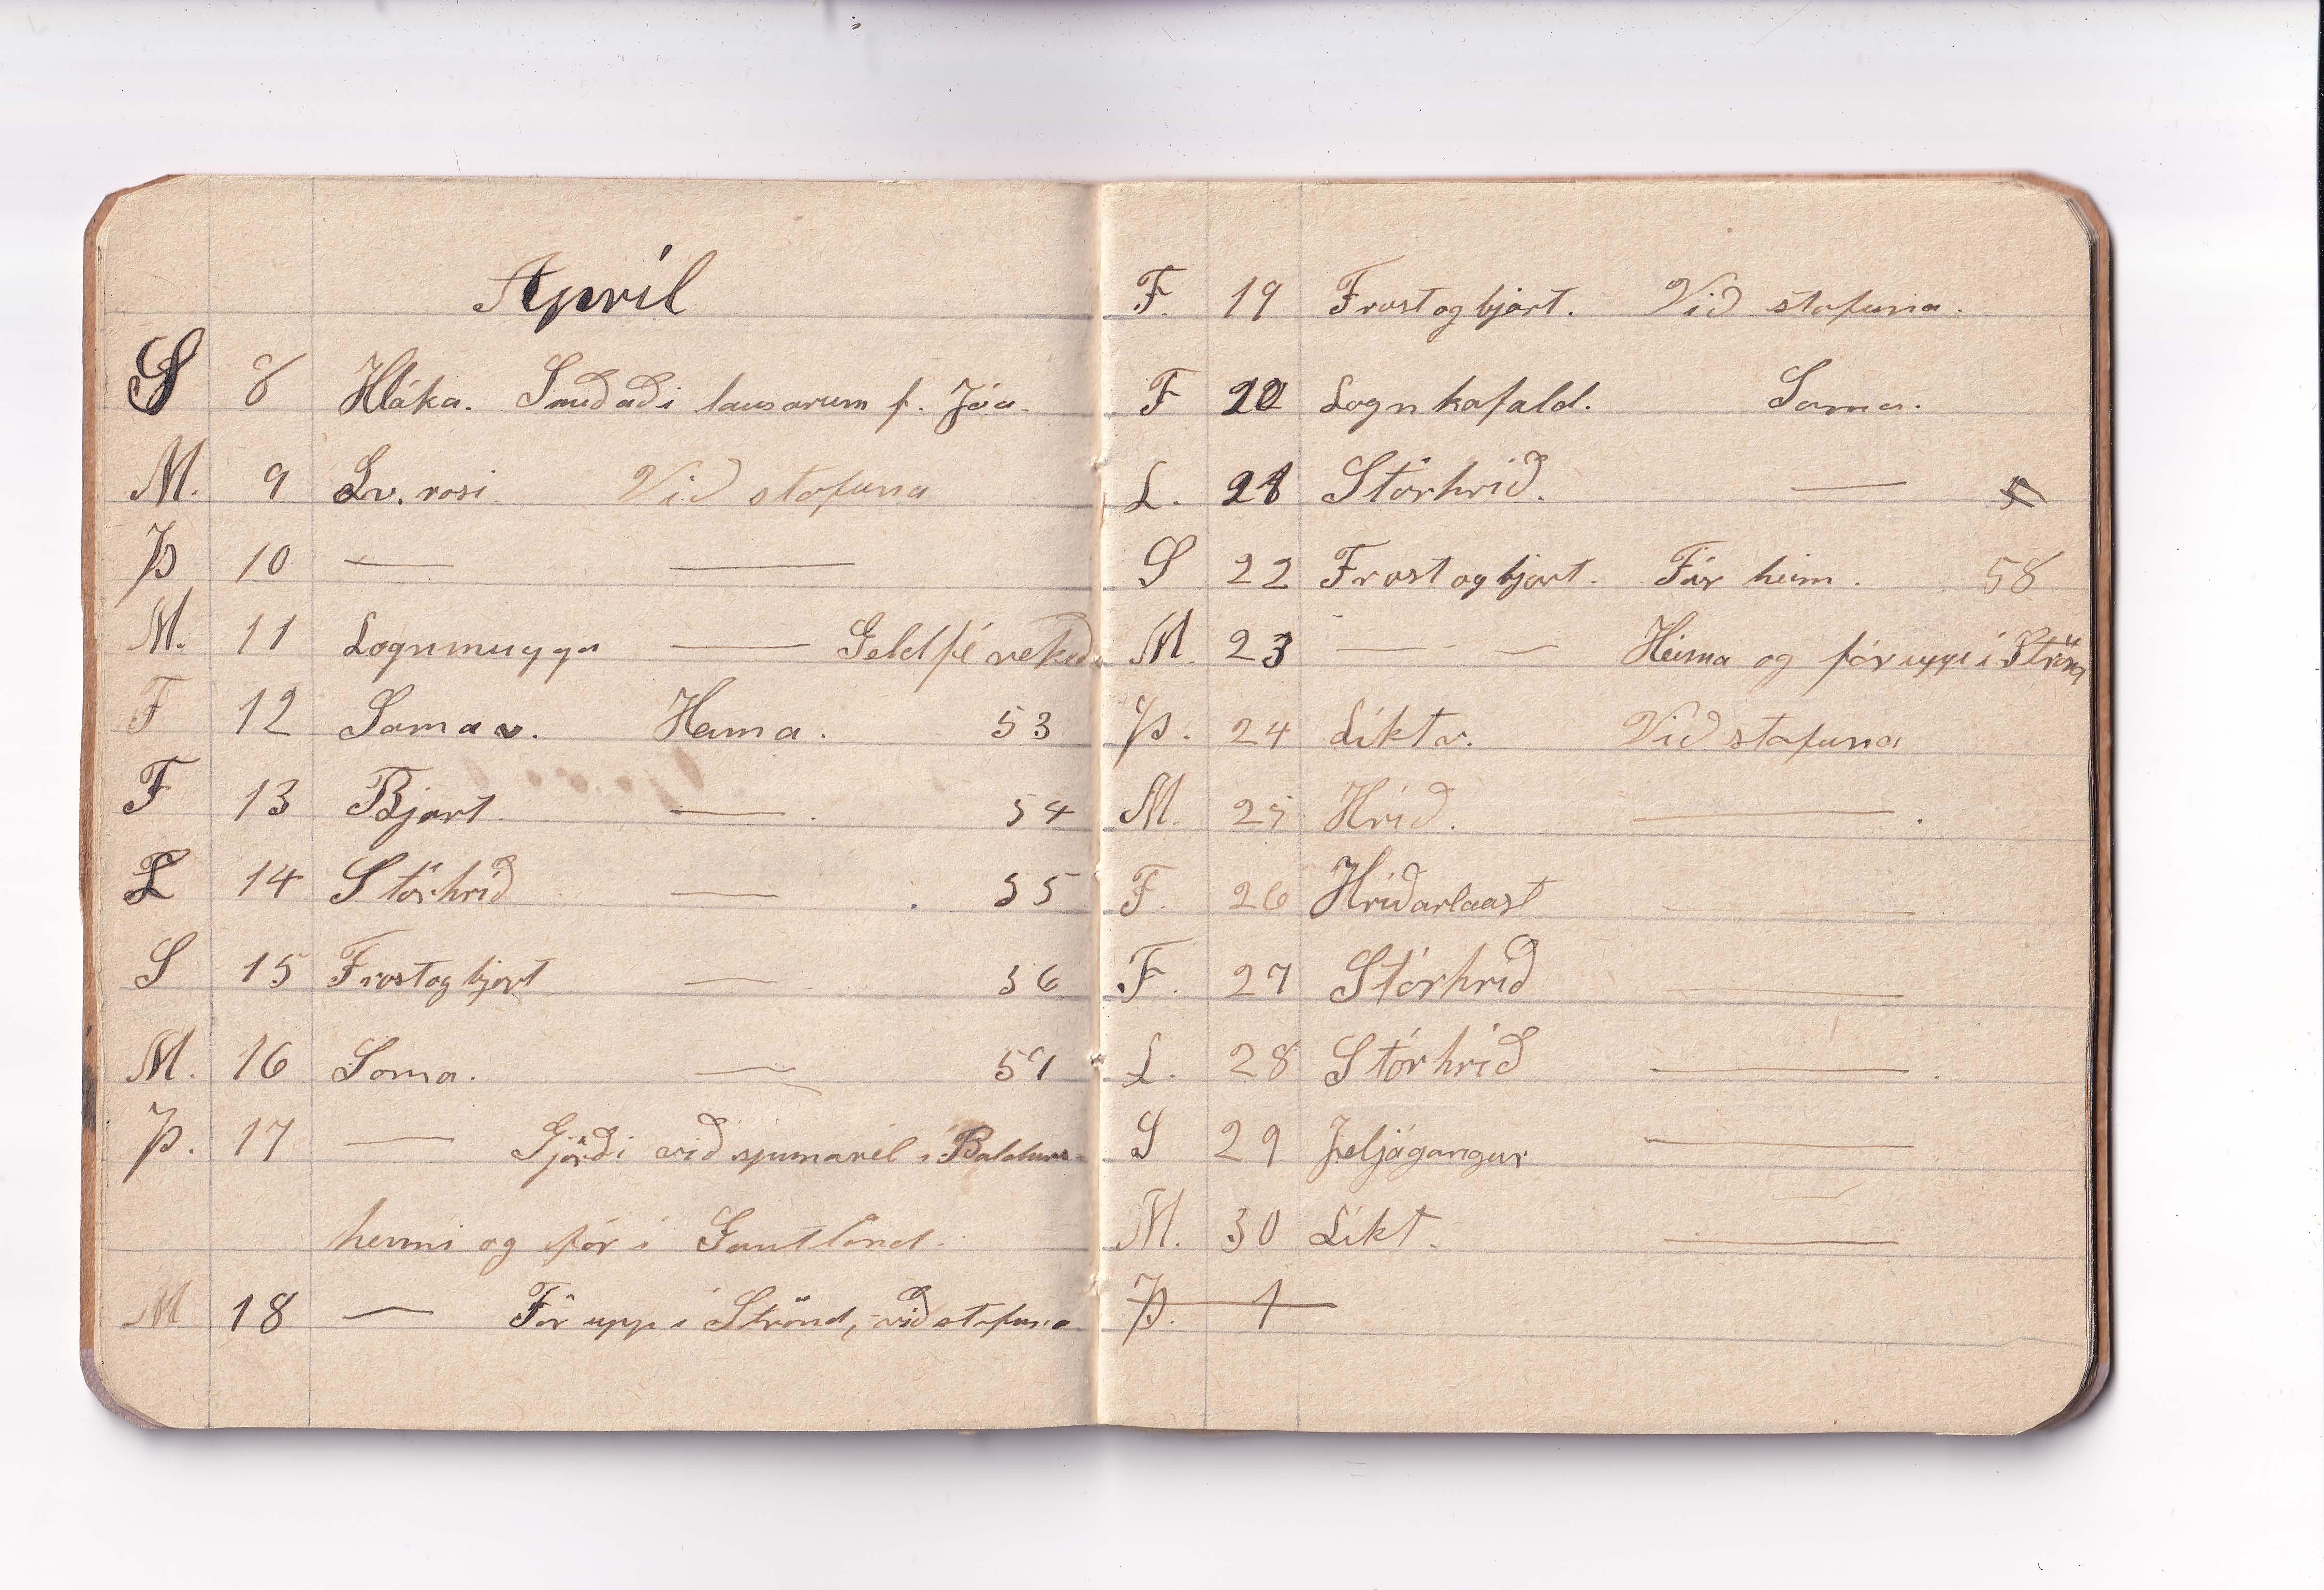 Apríl
S 8 Hláka. Smíðaði lausarum f. Jóa.
M. 9 Lv. rosi. Við stofuna
Þ 10 — —
M. 11 Lognmugga — Geldfé rekið
F 12 Sama v. Heima. 53
F 13 Bjart. — . 54
L 14 Stórhríð — 55
S 15 Frost og bjart — 56
M. 16 Sama. — 57
Þ. 17 — Gjörði við spunavél í Baldurs-
heimi og fór í Gautlönd.
M 18 — Fór upp í Strönd, við stofuna
F. 19 Frost og bjart. Við stofuna.
F 20 Lognkafald. Sama.
L. 21 Stórhríð. —
S 22 Frost og bjart. Fór heim. 58
M. 23 — — Heima og fór uppí Strönd
Þ. 24 Líkt v. Við stofuna
M. 25 Hríð. — .
F. 26 Hríðarlaust —
F. 27 Stórhríð —
L. 28 Stórhríð — .
S 29 Jeljagangur —
M. 30 Líkt. —
Þ. 1